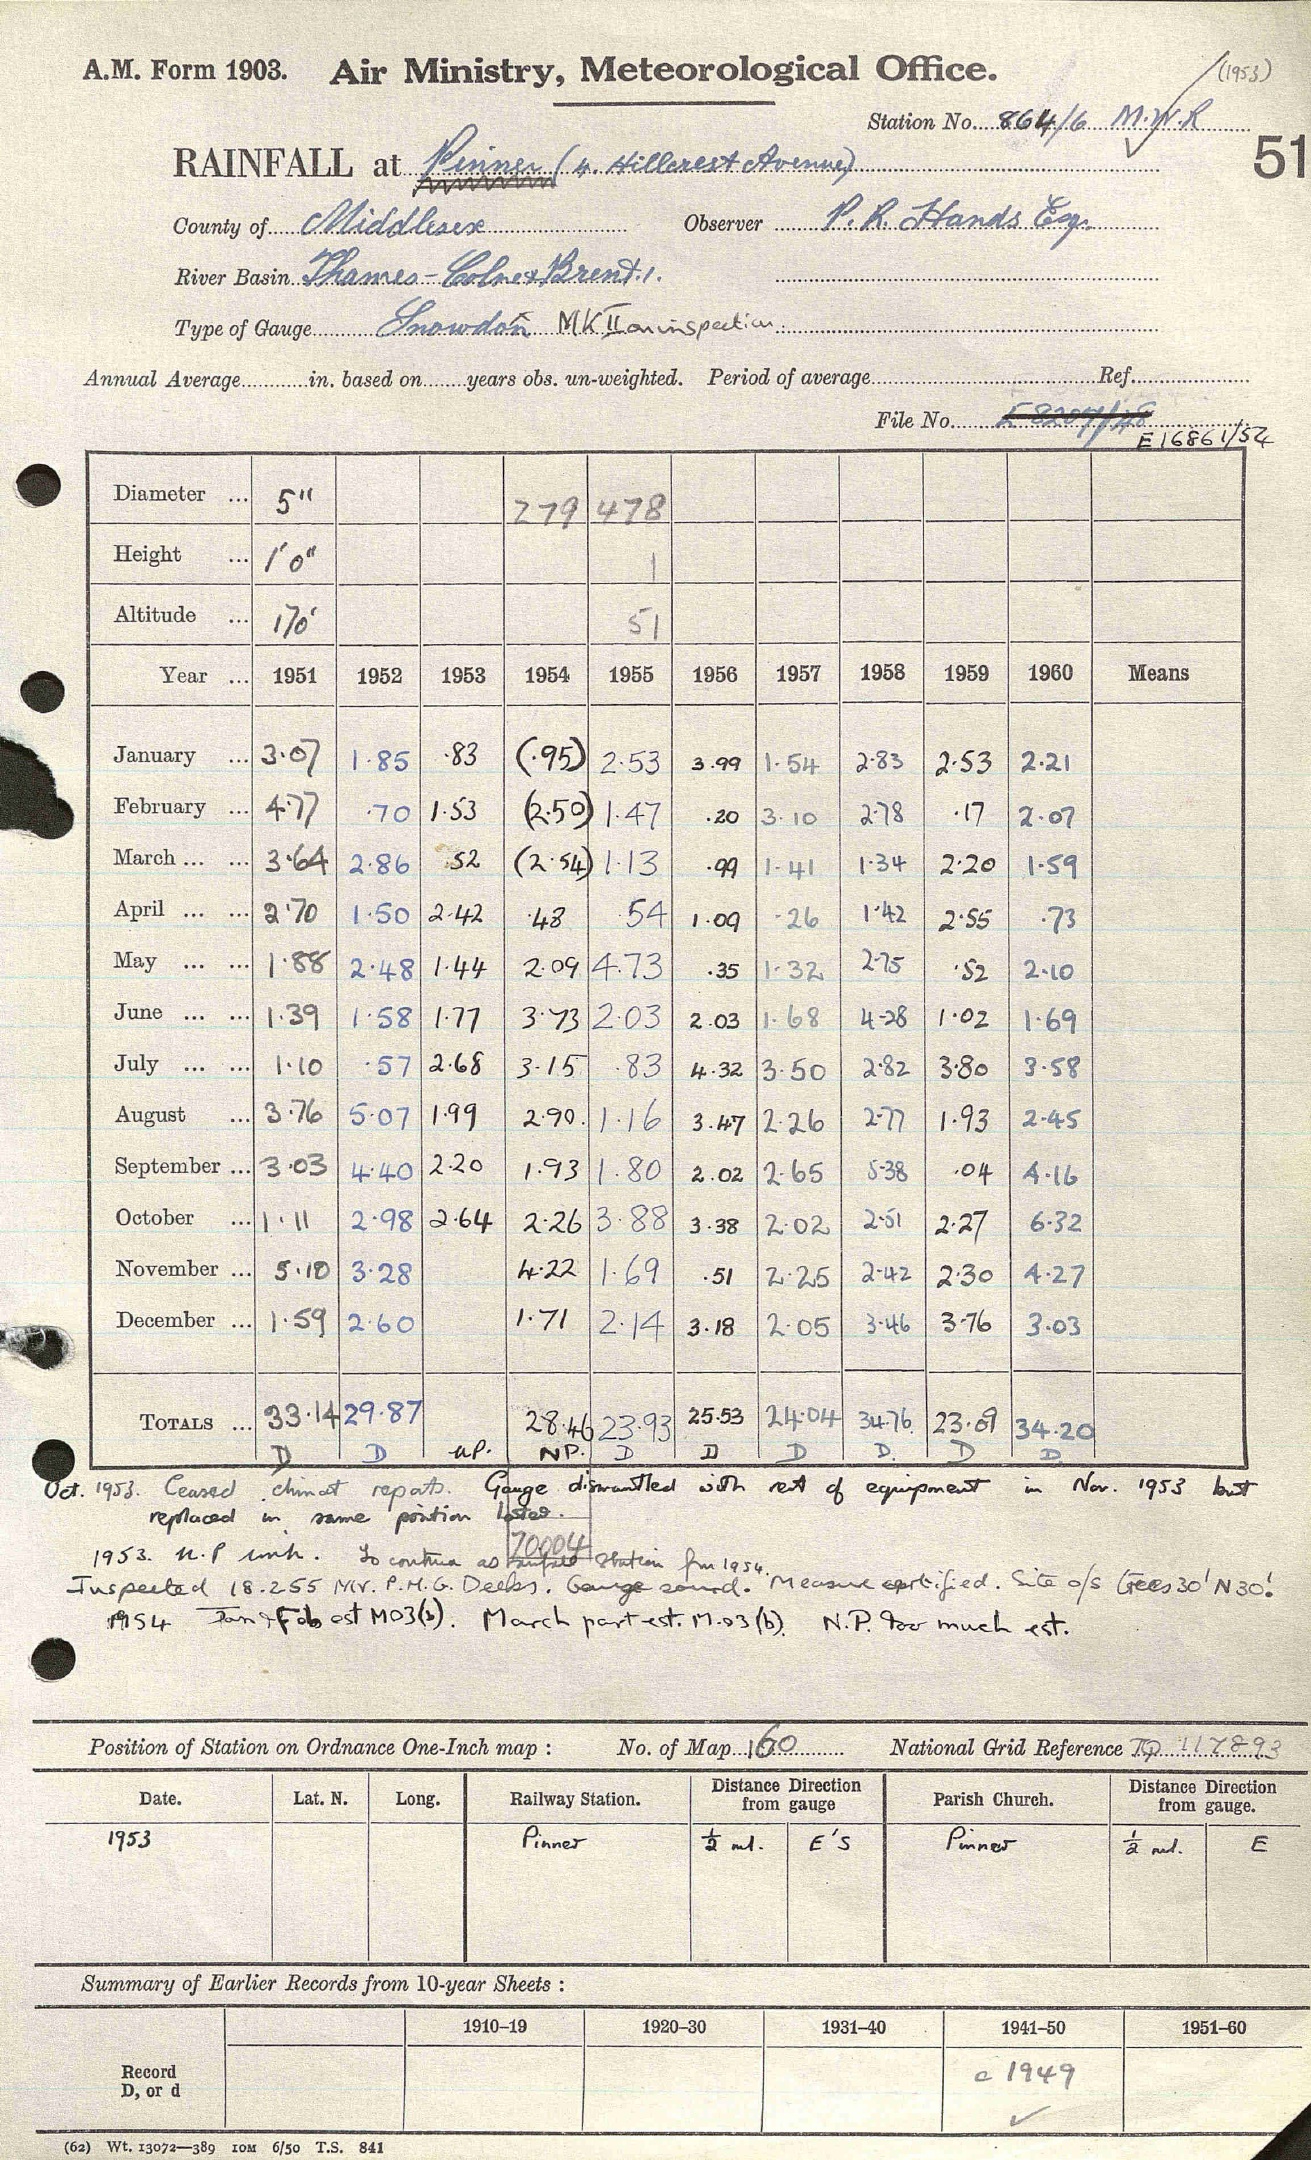 (1953)
A.M. Form 1903. Air Ministry, Meteorological Office.
Station No. 864/6 M.W.R
51
RAINFALL at Pinner (4. Hillcrest Avenue)
County of Middlesex Observer P. R. Hands Esq.
River Basin Thames - Colne & Brent.1.
Type of Gauge Snowdon MK II on inspection
Annual Average in. based on years obs. un-weighted. Period of average Ref.
File No. E 8207/48
E16861/54
Diameter ... 5" 279 478
Height ... 1'0" 1
Altitude ... 170' 51
Year ... 1951 1952 1953 1954 1955 1956 1957 1958 1959 1960 Means
January ... 3.07 1.85 .83 (.95) 2.53 3.99 1.54 2.83 2.53 2.21
February ... 4.77 .70 1.53 (2.50) 1.47 .20 3.10 2.78 .17 2.07
March ... ... 3.64 2.86 .52 (2.54) 1.13 .99 1.41 1.34 2.20 1.59
April ... ... 2.70 1.50 2.42 .48 .54 1.09 .26 1.42 2.55 .73
May ... ... 1.88 2.48 1.44 2.09 4.73 .35 1.32 2.75 .52 2.10
June ... ... 1.39 1.58 1.77 3.73 2.03 2.03 1.68 4.28 1.02 1.69
July ... ... 1.10 .57 2.68 3.15 .83 4.32 3.50 2.82 3.80 3.58
August ... 3.76 5.07 1.99 2.90. 1.16 3.47 2.26 2.77 1.93 2.45
September ... 3.03 4.40 2.20 1.93 1.80 2.02 2.65 5.38 .04 4.16
October ... 1.11 2.98 2.64 2.26 3.88 3.38 2.02 2.51 2.27 6.32
November ... 5.10 3.28 4.22 1.69 .51 2.25 2.42 2.30 4.27
December ... 1.59 2.60 1.71 2.14 3.18 2.05 3.46 3.76 3.03
TOTALS ... 33.14 29.87 28.46 23.93 25.53 24.04 34.76 23.09 34.20
D D N.P. N.P. D D D D. D D
Oct. 1953. Ceased climat repots. Gauge dismantled with rest of equipment in Nov. 1953 but
replaced in same position later.
70004
1953. N.P. To continue as rainfall station from 1954.
Inspected 18.2.55 Mr. P.M.G. Deeks. Gauge sound. Measure certified. Site o/s trees 30' N 30'.
1954 Jan & Feb est M03(b). March part est. M.03(b). N.P. too much est.
Position of Station on Ordnance One-Inch map : No. of Map 160 National Grid Reference TQ 117893
Date. Lat. N. Long. Railway Station. Distance Direction from gauge Parish Church. Distance Direction from gauge.
1953 Pinner ½ ml. E'S Pinner ½ ml. E
Summary of Earlier Records from 10-year Sheets :
1910–19 1920–30 1931–40 1941–50 1951–60
Record
D, or d
c 1949
(62) Wt. 13072—389 10M 6/50 T.S. 841